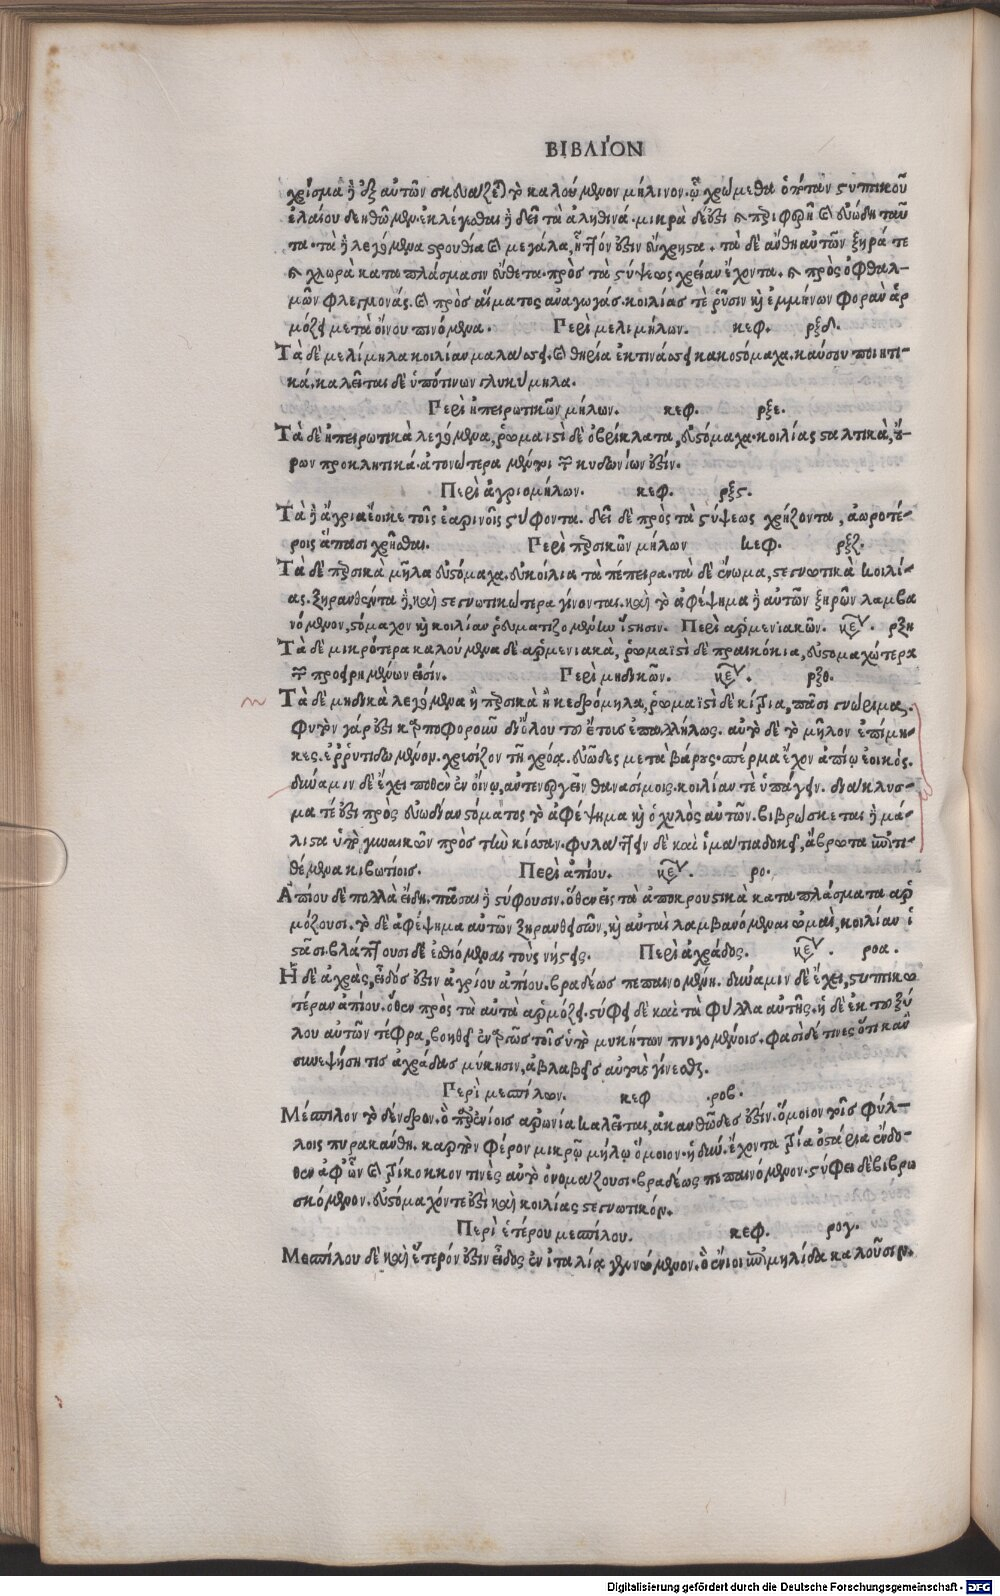 ΒΙΒΛΊΟΝ
χρίσμα ἢ ἐξ αὐτῶν σκευάζεται τὸ καλούμενον μήλινον. ᾧ χρώμεθα ὁπόταν στυπτικοῦ
ἐλαίου δεηθῶμεν. ἐκλέγεσθαι ἢ δεῖ τὰ ἀληθινά. μικρὰ δέ ἐστι καὶ περιφερῆ καὶ εὐώδη ταῦ
τα. τὰ ἢ λεγόμενα στρουθία καὶ μεγάλα, ἧττόν ἐστιν εὔχρηστα. τὰ δὲ ἄνθη αὐτῶν ξηρά τε
καὶ χλωρὰ καταπλάσμασιν εὔθετα. πρὸς τὰ στύψεως χρείαν ἔχοντα. καὶ πρὸς ὀφθαλ-
μῶν φλεγμονάς. καὶ πρὸς αἵματος ἀναγωγάς. κοιλίας τὲ ῥύσιν καὶ ἐμμήνων φορὰν ἁρ
μόζει μετὰ οἴνου πινόμενα. Περὶ μελιμήλων. κεφ. ρξδ.
Τὰ δὲ μελίμηλα κοιλίαν μαλάσσει. καὶ θηρία ἐκτινάσσει κακοστόμαχα. καύσου ποιητι-
κά. καλεῖται δὲ ὑπότινων γλυκύμηλα.
Περὶ ἠπειρωτικῶν μήλων. κεφ. ρξε.
Τὰ δὲ ἠπειρωτικὰ λεγόμενα, ῥωμαιστὶ δὲ ὀβρίκλατα, εὐστόμαχα. κοιλίας σταλτικά, οὔ-
ρων προκλητικά. ἀτονώτερα μέντοι τῶν κυδωνίων ἐστίν.
Περὶ ἀγριομήλων. κεφ. ρξς.
Τὰ ἢ ἄγρια ἔοικε τοῖς ἐαρινοῖς στύφοντα. δεῖ δὲ πρὸς τὰ στύψεως χρήζοντα, ἀωροτέ-
ροις ἅπασι χρῆσθαι. Περὶ περσικῶν μήλων κεφ. ρξζ.
Τὰ δὲ περσικὰ μῆλα εὐστόμαχα. εὐκοίλια τὰ πέπειρα. τὰ δὲ ἔνωμα, στεγνωτικὰ κοιλί-
ας. ξηρανθέντα ἢ, καὶ στεγνωτικώτερα γίνονται. καὶ τὸ ἀφέψημα ἢ αὐτῶν ξηρῶν λαμβα
νόμενον, στόμαχον καὶ κοιλίαν ῥευματιζομένην ἵστησιν. Περὶ ἀρμενιακῶν. κεφ. ρξη
Τὰ δὲ μικρότερα καλούμενα δὲ ἀρμενιακά, ῥωμαϊστὶ δὲ πραικόκια, εὐστομαχώτερα
τῶν προειρημένων εἰσίν. Περὶ μηδικῶν. κεφ. ρξθ.
Τὰ δὲ μηδικὰ λεγόμενα ἢ περσικὰ ἢ κεδρόμηλα, ῥωμαϊστὶ δὲ κίτρια, πᾶσι γνώριμα.
Φυτὸν γάρ ἐστι καρποφοροῦν δι' ὅλου τοῦ ἔτους ἐπαλλήλως. αὐτὸ δὲ τὸ μῆλον ἐπίμη-
κες. ἐῤῥυτιδωμένον. χρυσίζον τῇ χρόᾳ. εὐῶδες μετὰ βάρους. σπέρμα ἔχον ἀπίῳ ἐοικός.
δύναμιν δὲ ἔχει ποθὲν ἐν οἴνῳ, ἀντενεργεῖν θανασίμοις. κοιλίαν τὲ ὑπάγειν. διάκλυσ-
μα τέ ἐστι πρὸς εὐωδίαν στόματος τὸ ἀφέψημα καὶ ὁ χυλὸς αὐτῶν. βιβρώσκεται ἢ μά-
λιστα ὑπὸ γυναικῶν πρὸς τὴν κίσσαν. φυλάττειν δὲ καὶ ἱμάτια δοκεῖ, ἄβρωτα ἐπιτι-
θέμενα κιβωτίοις. Περὶ ἀπίου. κεφ. ρο.
Ἀπίου δὲ πολλὰ εἴδη. πᾶσαι ἢ στύφουσιν. ὅθεν εἰς τὰ ἀποκρουστικὰ καταπλάσματα ἁρ
μόζουσι. τὸ δὲ ἀφέψημα αὐτῶν ξηρανθεισῶν, καὶ αὐταὶ λαμβανόμεναι ὠμαί, κοιλίαν ἱ
στᾶσι. βλάπτουσι δὲ ἐσθιόμεναι τοὺς νήστεις. Περὶ ἀχράδος. κεφ. ροα.
Ἡ δὲ ἀχράς, εἶδός ἐστιν ἀγρίου ἀπίου. βραδέως πεπαινομένη. δύναμιν δὲ ἔχει, στυπτικω
τέραν ἀπίου. ὅθεν πρὸς τὰ αὐτὰ ἁρμόζει. στύφει δὲ καὶ τὰ φύλλα αὐτῆς. ἡ δὲ ἐκ τοῦ ξύ
λου αὐτῶν τέφρα, βοηθεῖ ἐνεργῶς τοῖς ὑπὸ μυκήτων πνιγομένοις. φασὶ δέ τινες ὅτι κἂν
συνεψήσῃ τις ἀχράδας μύκησιν, ἀβλαβεῖς αὐτοὺς γίνεσθαι.
Περὶ μεσπίλων. κεφ. ροβ.
Μέσπιλον τὸ δένδρον. ὃ παρ' ἐνίοις ἀρωνία καλεῖται, ἀκανθῶδές ἐστιν. ὅμοιον τοῖς φύλ-
λοις πυρακάνθῃ. καρπὸν φέρον μικρῷ μήλῳ ὅμοιον. ἡδύν. ἔχοντα τρία ὀστάρια ἔνδο-
θεν ἀφ' ὧν καὶ τρίκοκκον τινὲς αὐτὸ ὀνομάζουσι. βραδέως πεπαινόμενον. στύφει δὲ βιβρω
σκόμενον. εὐστόμαχόν τε ἐστὶ καὶ κοιλίας στεγνωτικόν.
Περὶ ἑτέρου μεσπίλου. κεφ. ρογ.
Μεσπίλου δὲ καὶ ἕτερόν ἐστιν εἶδος ἐν ἰταλίᾳ γεννώμενον. ὃ ἔνιοι ἐπιμηλίδα καλοῦσιν.
Digitalisierung gefördert durch die Deutsche Forschungsgemeinschaft - DFG